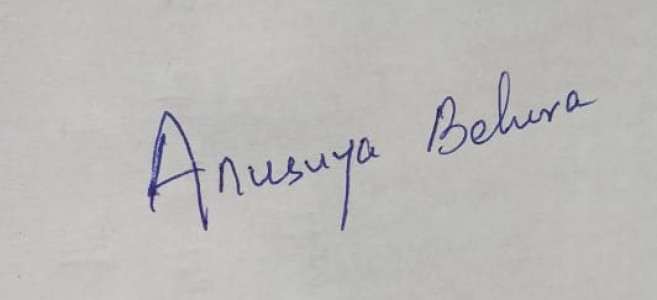 Anusuya Behera